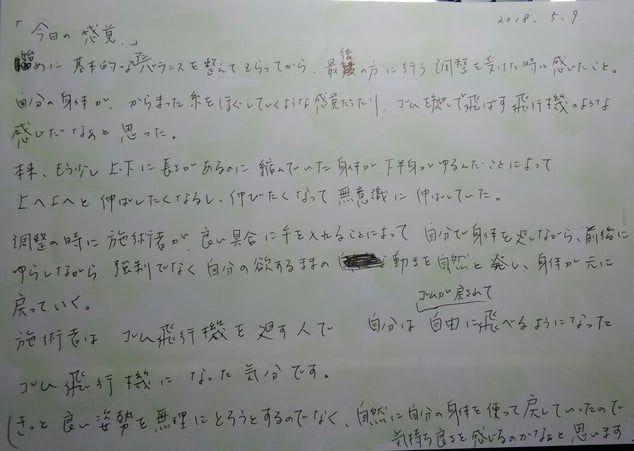 「今日の感覚。」
2018. 5. 9
始めに基本的なバランスを整えてもらってから、最後の方に行う調整を受けた時に感じたこと。
自分の身体が、からまった糸をほぐしていくような感覚だったり、ゴムを捩じて飛ばす飛行機のような
感じだなぁと思った。
本来、もう少し上下に長さがあるのに縮んでいた身体が、下半身がゆるんだことによって
上へ上へと伸ばしたくなるし、伸びたくなって無意識に伸ばしていた。
調整の時に施術者が、良い具合に手を入れることによって自分で身体を捩しながら、前後に
ゆらしながら、強制でなく自分の欲するままの動きを自然と発し、身体が元に
戻っていく。
ゴムが戻されて
施術者はゴム飛行機を廻す人で 自分は自由に飛べるようになった
ゴム飛行機になった気分です。
(きっと良い姿勢を無理にとろうとするのでなく、自然に自分の身体を使って戻していたので
気持ち良さを感じるのかなぁと思います